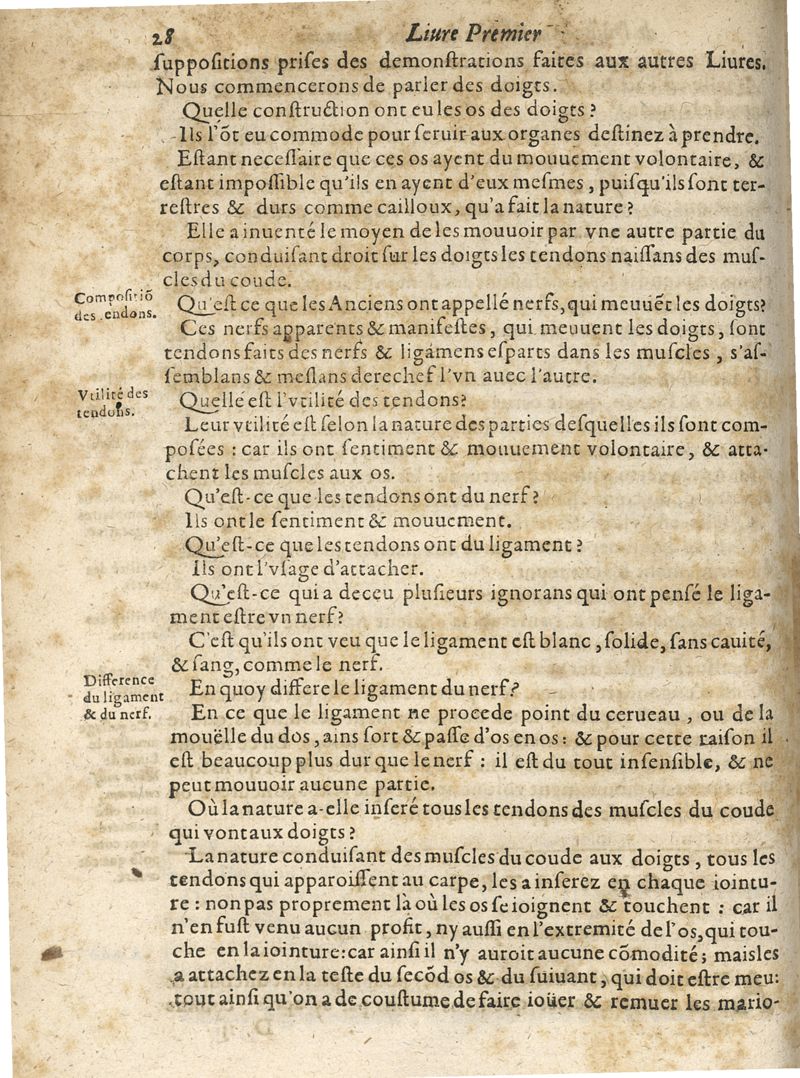 28 Liure Premier
ſuppoſitions priſes des demonſtrations faites aux autres Liures.
Nous commencerons de parler des doigts.
Quelle conſtruction ont eu les os des doigts ?
Ils l'ōt eu commode pour ſeruir aux organes deſtinez à prendre.
Eſtant neceſſaire que ces os ayent du mouuement volontaire, &
eſtant impoſſible qu'ils en ayent d'eux meſmes, puiſqu'ils ſont ter-
reſtres & durs comme cailloux, qu'a fait la nature ?
Elle a inuenté le moyen de les mouuoir par vne autre partie du
corps, conduiſant droit ſur les doigts les tendons naiſſans des muſ-
cles du coude.
Compoſitiō
des tendons.
Qu'eſt ce que les Anciens ont appellé nerfs, qui meuuēt les doigts?
Ces nerfs apparents & manifeſtes, qui meuuent les doigts, ſont
tendons faits des nerfs & ligamens eſparts dans les muſcles, s'aſ-
ſemblans & meſlans derechef l'vn auec l'autre.
Vtilité des
tendons.
Quelle eſt l'vtilité des tendons?
Leur vtilité eſt ſelon la nature des parties deſquelles ils ſont com-
poſées : car ils ont ſentiment & mouuement volontaire, & atta-
chent les muſcles aux os.
Qu'eſt-ce que les tendons ont du nerf ?
Ils ont le ſentiment & mouuement.
Qu'eſt-ce que les tendons ont du ligament ?
Ils ont l'vſage d'attacher.
Qu'eſt-ce qui a deceu pluſieurs ignorans qui ont penſé le liga-
ment eſtre vn nerf?
C'eſt qu'ils ont veu que le ligament eſt blanc, ſolide, ſans cauité,
& ſang, comme le nerf.
Difference
du ligament
& du nerf.
En quoy differe le ligament du nerf?
En ce que le ligament ne procede point du cerueau, ou de la
mouëlle du dos, ains ſort & paſſe d'os en os : & pour cette raiſon il
eſt beaucoup plus dur que le nerf : il eſt du tout inſenſible, & ne
peut mouuoir aucune partie.
Où la nature a-elle inſeré tous les tendons des muſcles du coude
qui vont aux doigts ?
La nature conduiſant des muſcles du coude aux doigts, tous les
tendons qui apparoiſſent au carpe, les a inſerez en chaque iointu-
re : non pas proprement là où les os ſe ioignent & touchent : car il
n'en fuſt venu aucun profit, ny auſſi en l'extremité de l'os, qui tou-
che en la iointure: car ainſi il n'y auroit aucune cōmodité ; mais les
a attachez en la teſte du ſecōd os & du ſuiuant, qui doit eſtre meu:
tout ainſi qu'on a de couſtume de faire ioüer & remuer les mario-